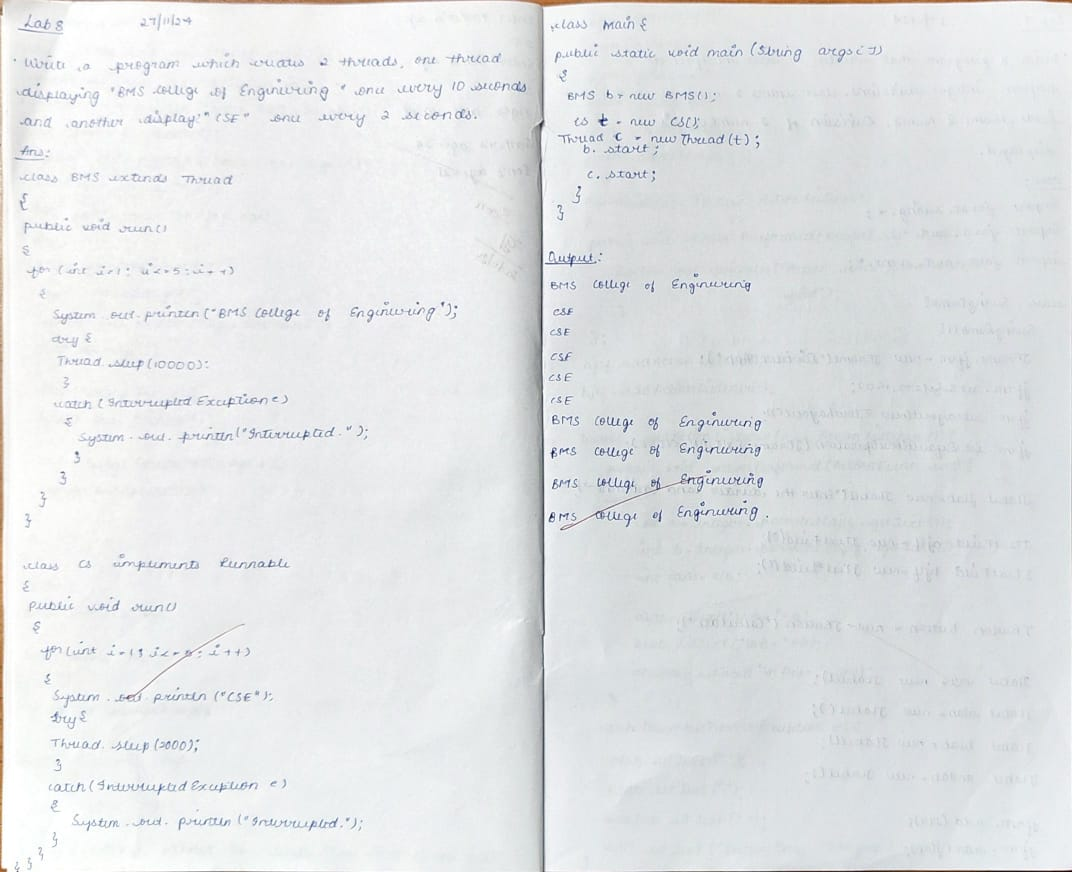 Lab 8 27/11/24
• Write a program which creates 2 threads, one thread
displaying "BMS College of Engineering" once every 10 seconds
and another display "CSE" once every 2 seconds.
Ans:
class BMS extends Thread
{
public void run()
{
for (int i=1; i<=5; i++)
{
System.out.println("BMS College of Engineering");
try {
Thread.sleep(10000);
}
catch (Interrupted Exception e)
{
System.out.println("Interrupted.");
}
}
}
}
class CS implements Runnable
{
public void run()
{
for (int i=1; i<=5; i++)
{
System.out.println ("CSE");
try {
Thread.sleep (2000);
}
catch (Interrupted Exception e)
{
System.out.println ("Interrupted.");
}
} } }
class Main {
public static void main (String args[])
{
BMS b = new BMS();
CS t = new CS();
Thread C = new Thread (t);
b. start;
c. start;
}
}
Output:
BMS College of Engineering
CSE
CSE
CSE
CSE
CSE
BMS College of Engineering
BMS College of Engineering
BMS College of Engineering
BMS College of Engineering.